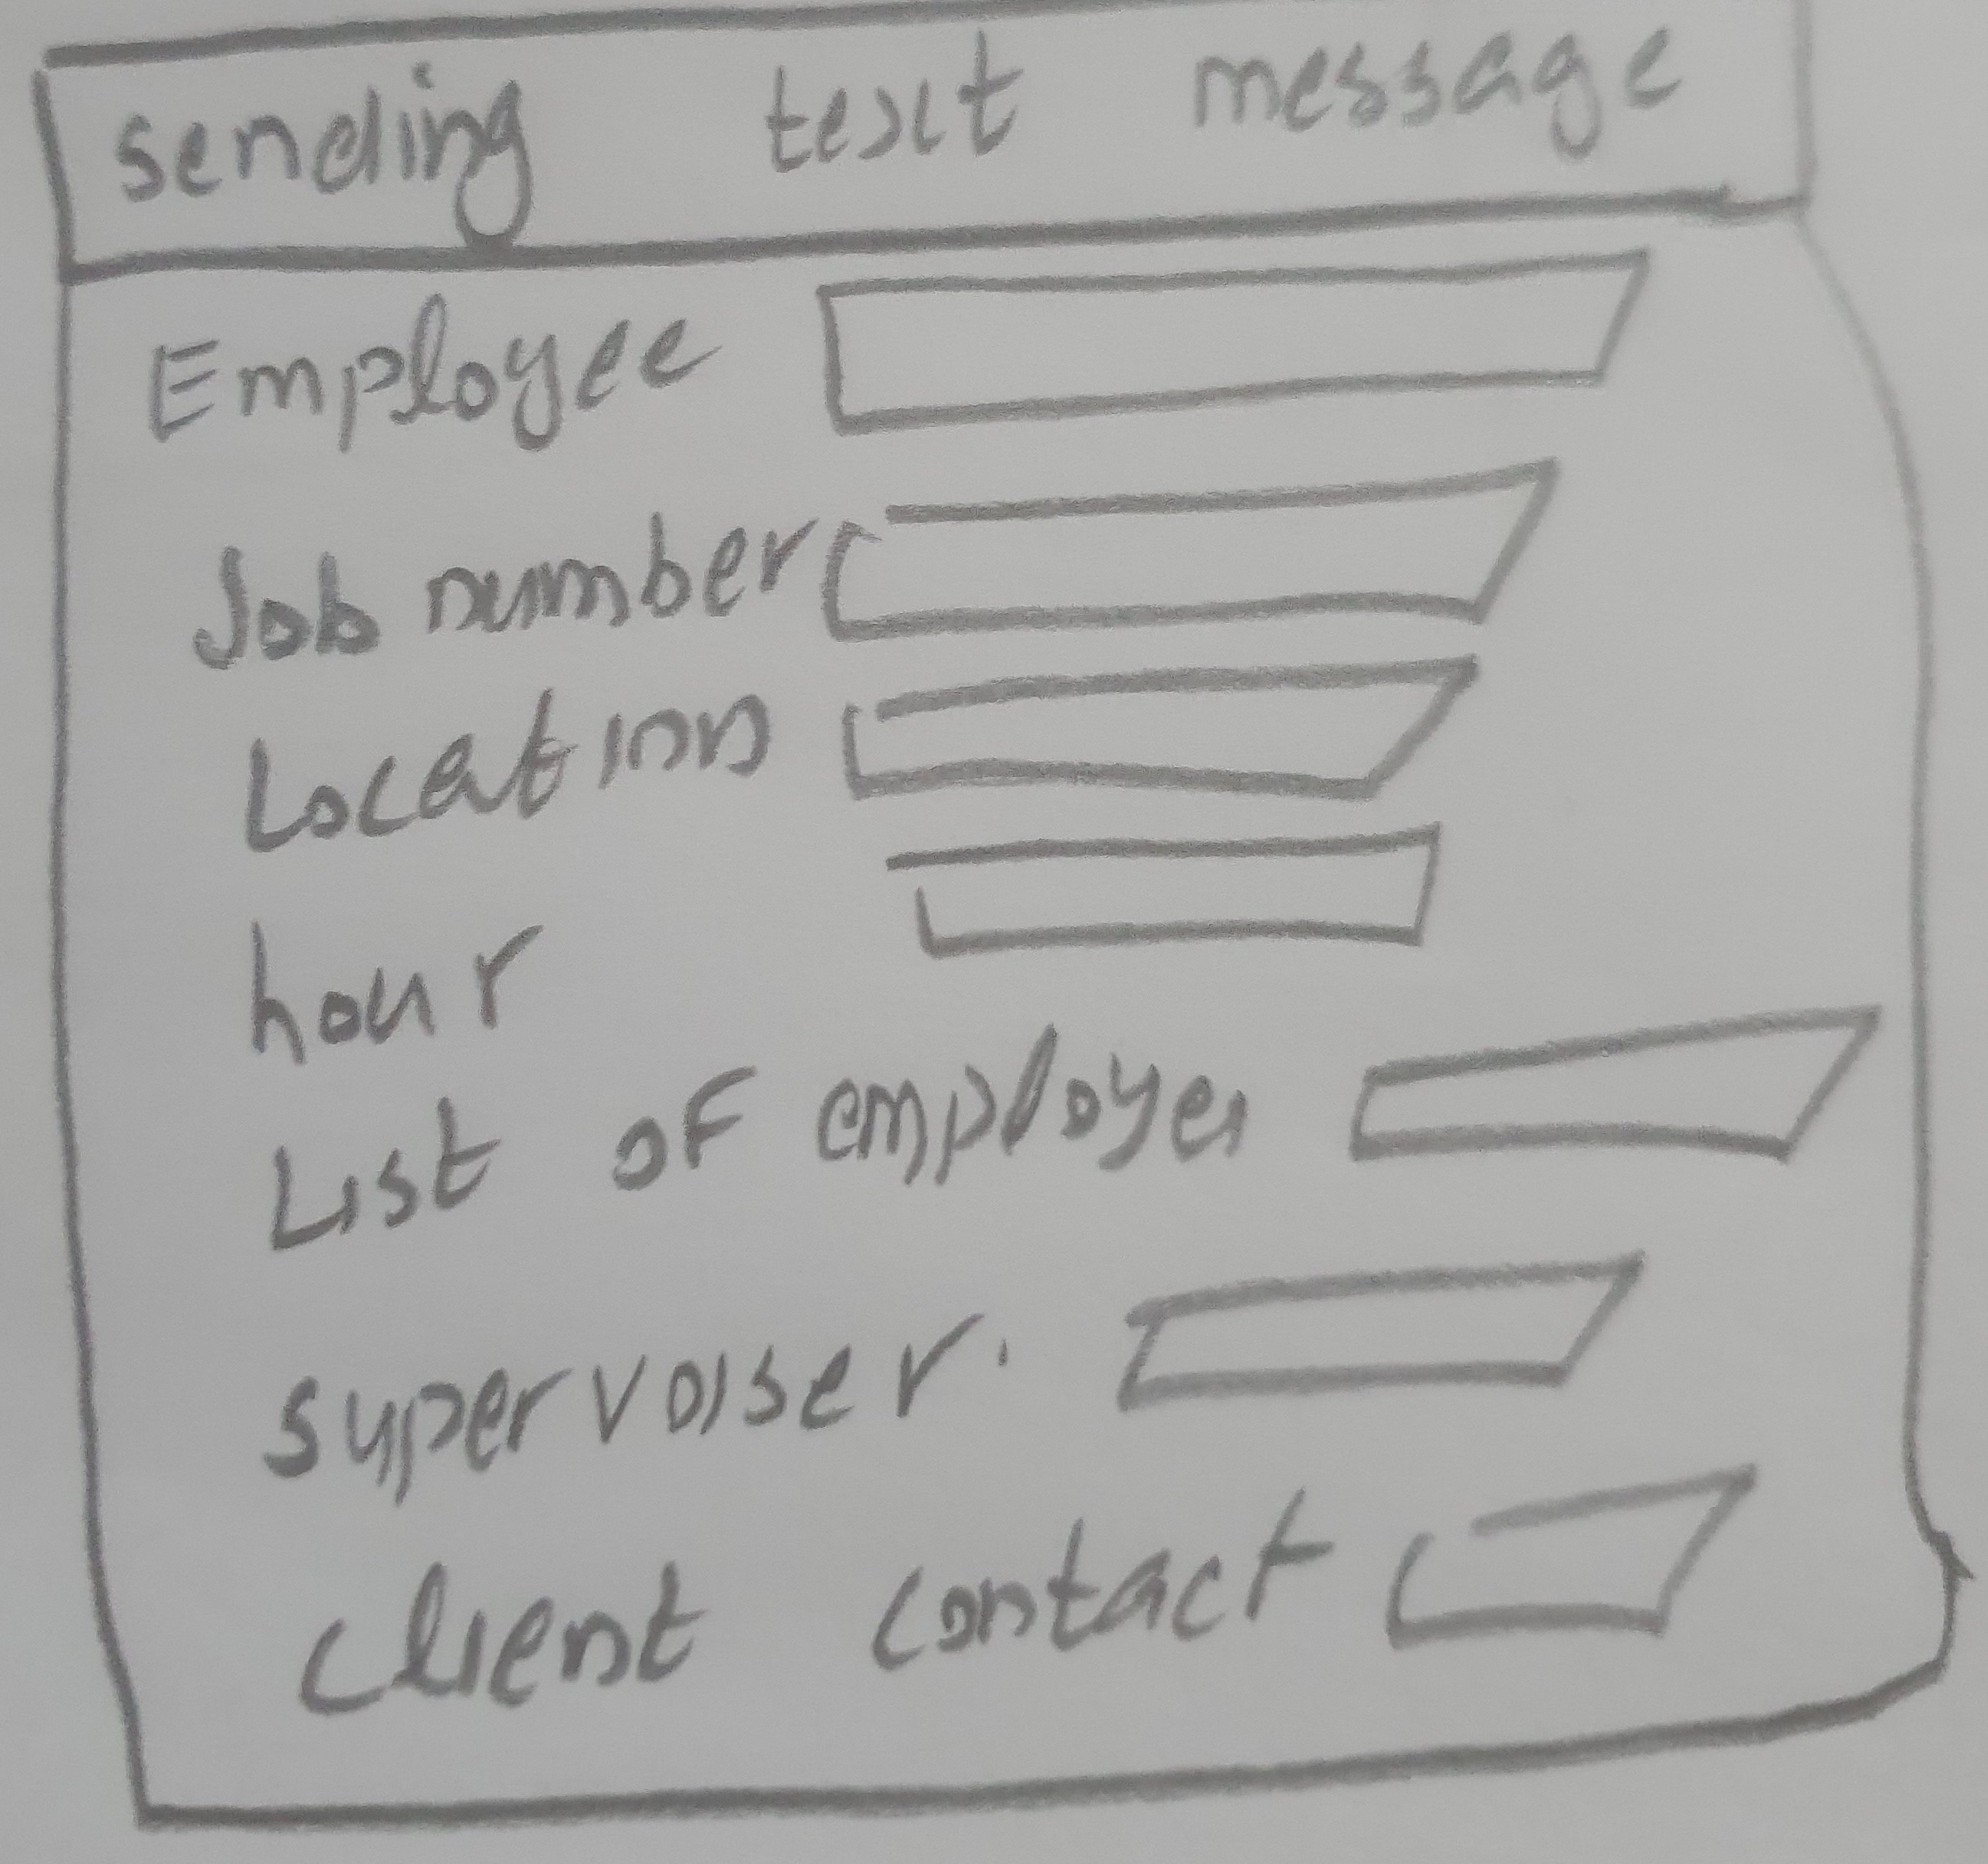 sending text message
Employee
Job number
Location
hour
List of employer
supervoiser.
client contact